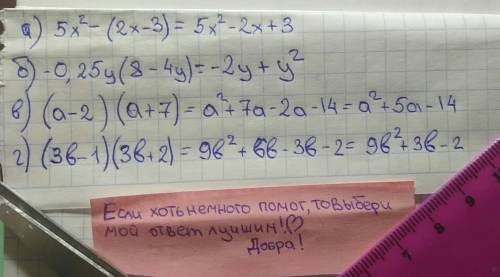 а) 5x² - (2x-3) = 5x² - 2x + 3
б) -0,25y(8-4y) = -2y + y²
в) (a-2) (a+7) = a² + 7a - 2a - 14 = a² + 5a - 14
г) (3в-1)(3в+2) = 9в² + 6в - 3в - 2 = 9в² + 3в - 2
Если хоть немного помог, то выбери
мой ответ лучшим!♡
Добра!
7 8 9 10